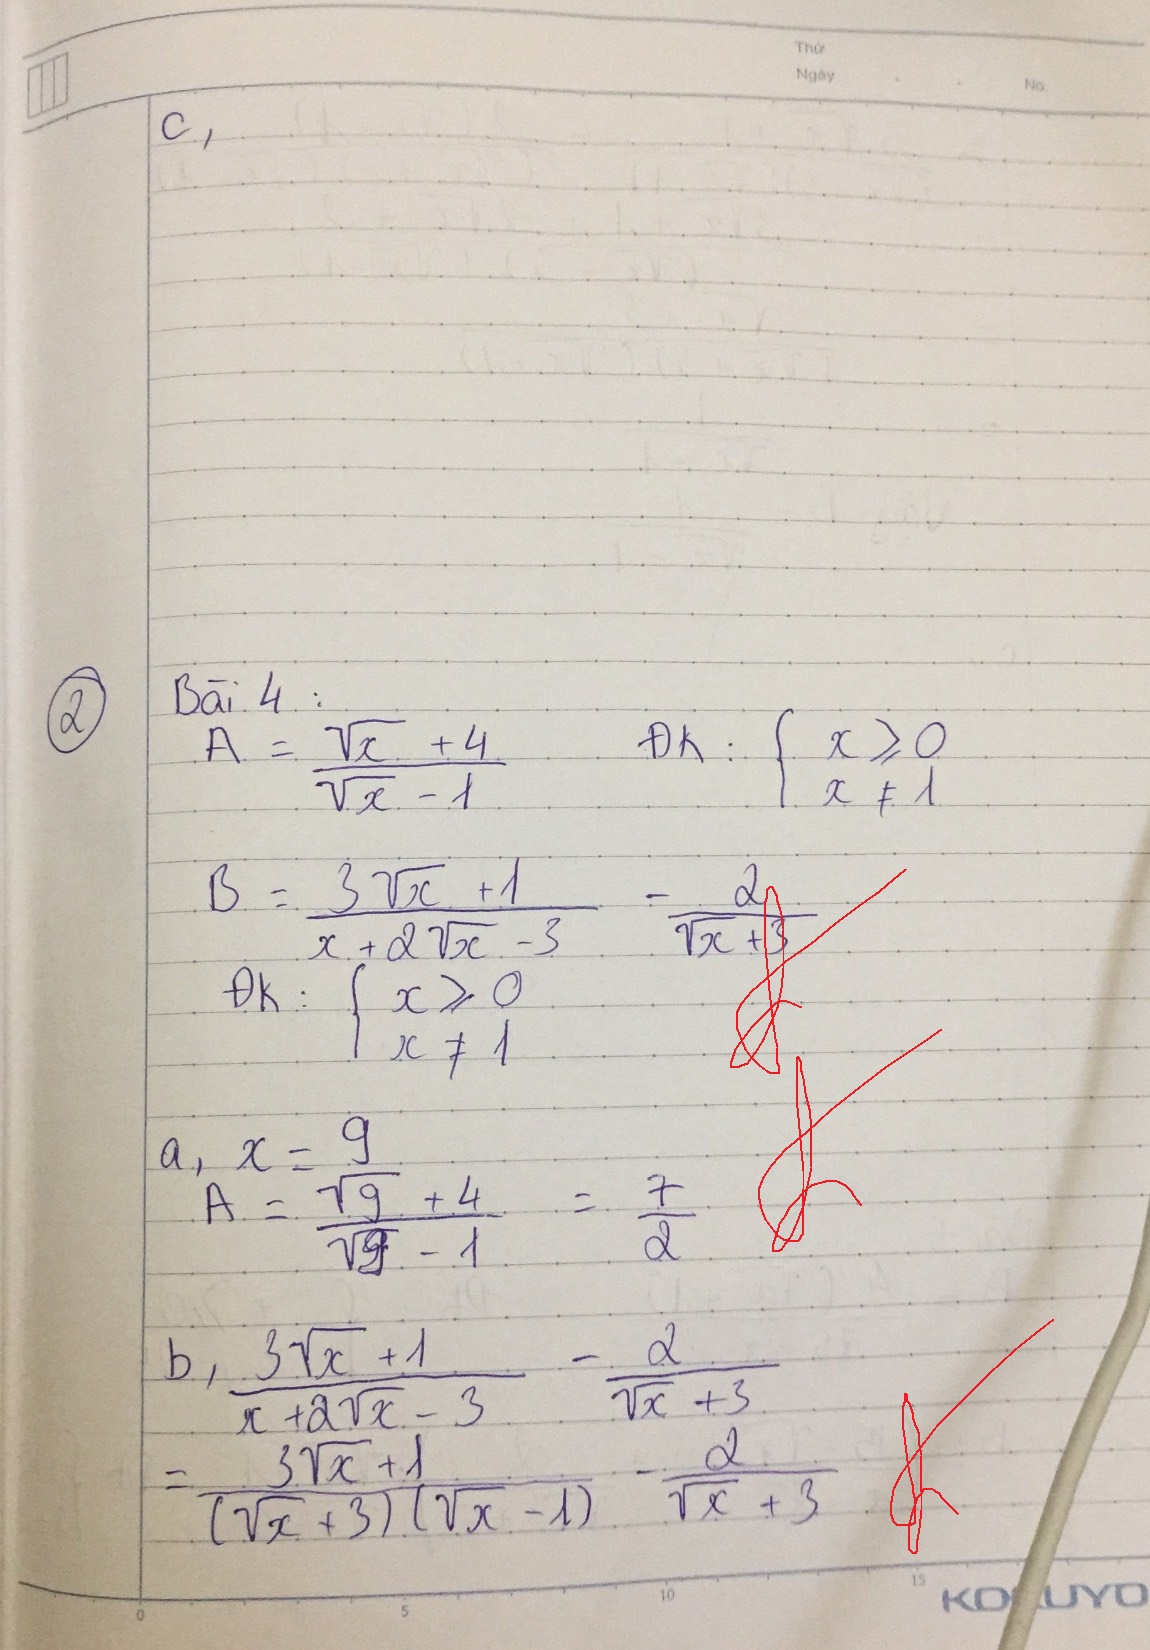 Thứ
Ngày
No.
c,
② Bài 4 :
A = (√x + 4)/(√x - 1) ĐK : { x ⩾ 0
x ≠ 1
B = (3√x + 1)/(x + 2√x - 3) - 2/(√x + 3)
ĐK : { x ⩾ 0
x ≠ 1
a, x = 9
A = (√9 + 4)/(√9 - 1) = 7/2
b, (3√x + 1)/(x + 2√x - 3) - 2/(√x + 3)
= (3√x + 1)/((√x + 3)(√x - 1)) - 2/(√x + 3)
0 5 10 15
KOKUYO